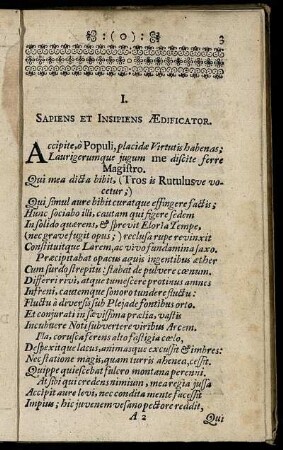 :(o): 3
I.
SAPIENS ET INSIPIENS ÆDIFICATOR.
Accipite, ô Populi, placidæ Virtutis habenas;
Laurigerumque jugum me discite ferre
Magistro.
Qui mea dicta bibit, (Tros is Rutulusve vo-
cetur;)
Qui simul aure bibit curatque effingere factis;
Hunc sociabo illi, cautam qui figere sedem
In solido quærens, & sprevit Eloria Tempe,
(nec grave fugit opus;) reclusa rupe revinxit
Constituitque Larem, ac vivo fundamina saxo.
Præcipitabat opacus aquis ingentibus æther
Cum surdo strepitu: stabat de pulvere cœnum,
Differri rivi, atque tumescere protinus amnes
Infreni, cautemque sonoro tundere fluctu:
Fluctu à deversis sub Plejade fontibus orto.
Et conjurati in sævissima prælia, vastis
Incubuere Noti subvertere viribus Arcem.
Illa, corusca ferens alto fastigia cœlo,
Despexitque lacus, animasque excussit & imbres:
Nec statione magis, quam turris ahenea, cessit.
Quippe quiescebat fulcro montana perenni.
At sibi qui credens nimium, mea regia jussa
Accipit aure levi, nec condita mente facessit
Impius; hic juvenem vesano pectore reddit,
A 2 Qui